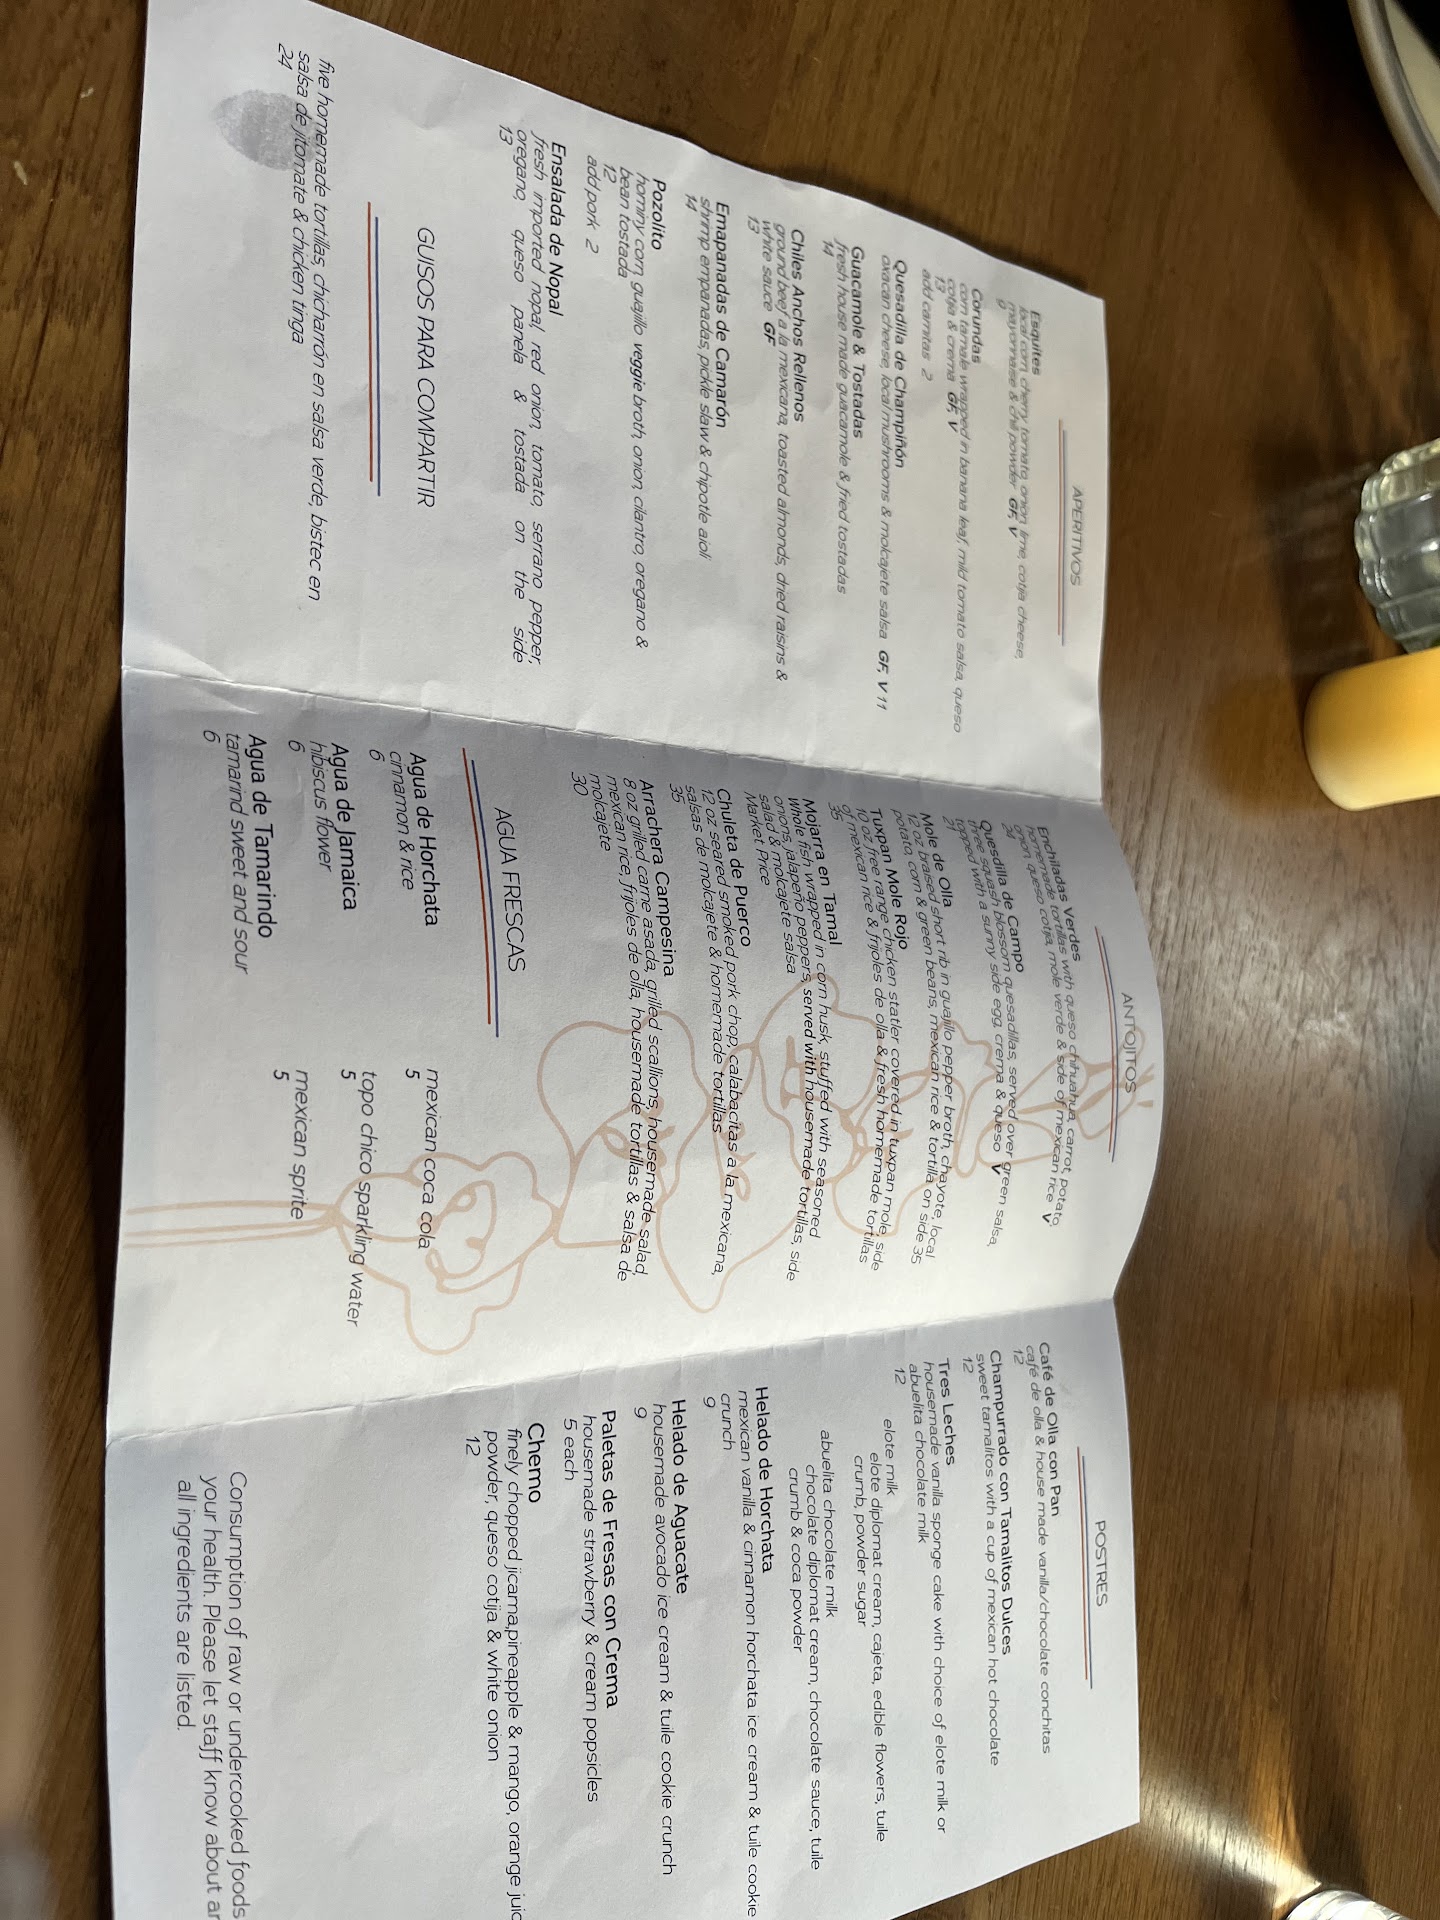 APERITIVOS
Esquites
local corn, cherry tomato, onion, lime, cotija cheese,
mayonnaise & chili powder GF, V
9
Corundas
corn tamale wrapped in banana leaf, mild tomato salsa, queso
cotija & crema GF, V
13
add carnitas 2
Quesadilla de Champiñón
oxacan cheese, local mushrooms & molcajete salsa GF, V 11
Guacamole & Tostadas
fresh house made guacamole & fried tostadas
14
Chiles Anchos Rellenos
ground beef a la mexicana, toasted almonds, dried raisins &
white sauce GF
13
Emapanadas de Camarón
shrimp empanadas, pickle slaw & chipotle aioli
14
Pozolito
hominy corn, guajillo veggie broth, onion, cilantro, oregano &
bean tostada
12
add pork 2
Ensalada de Nopal
fresh imported nopal, red onion, tomato, serrano pepper,
oregano, queso panela & tostada on the side
13
GUISOS PARA COMPARTIR
five homemade tortillas, chicharrón en salsa verde, bistec en
salsa de jitomate & chicken tinga
24
ANTOJITOS
Enchiladas Verdes
homemade tortillas with queso chihuahua, carrot, potato,
onion queso cotija, mole verde & side of mexican rice V
24
Quesdilla de Campo
three squash blossom quesadillas, served over green salsa,
topped with a sunny side egg, crema & queso V
21
Mole de Olla
12 oz braised short rib in guajillo pepper broth, chayote, local
potato, corn & green beans, mexican rice & tortilla on side 35
Tuxpan Mole Rojo
10 oz free range chicken statler covered in tuxpan mole, side
of mexican rice & frijoles de olla & fresh homemade tortillas
35
Mojarra en Tamal
Whole fish wrapped in corn husk, stuffed with seasoned
onions, jalapeño peppers, served with housemade tortillas, side
salad & molcajete salsa
Market Price
Chuleta de Puerco
12 oz seared smoked pork chop, calabacitas a la mexicana,
salsas de molcajete & homemade tortillas
35
Arrachera Campesina
8 oz grilled carne asada, grilled scallions, housemade salad,
mexican rice, frijoles de olla, housemade tortillas & salsa de
molcajete
30
AGUA FRESCAS
Agua de Horchata
cinnamon & rice
6
Agua de Jamaica
hibiscus flower
6
Agua de Tamarindo
tamarind sweet and sour
6
mexican coca cola
5
topo chico sparkling water
5
mexican sprite
5
POSTRES
Café de Olla con Pan
café de olla & house made vanilla/chocolate conchitas
12
Champurrado con Tamalitos Dulces
sweet tamalitos with a cup of mexican hot chocolate
12
Tres Leches
housemade vanilla sponge cake with choice of elote milk or
abuelita chocolate milk
12
elote milk
elote diplomat cream, cajeta, edible flowers, tuile
crumb, powder sugar
abuelita chocolate milk
chocolate diplomat cream, chocolate sauce, tuile
crumb & coca powder
Helado de Horchata
mexican vanilla & cinnamon horchata ice cream & tuile cookie
crunch
9
Helado de Aguacate
housemade avocado ice cream & tuile cookie crunch
9
Paletas de Fresas con Crema
housemade strawberry & cream popsicles
5 each
Chemo
finely chopped jicama,pineapple & mango, orange juic
powder, queso cotija & white onion
12
Consumption of raw or undercooked foods
your health. Please let staff know about ar
all ingredients are listed.